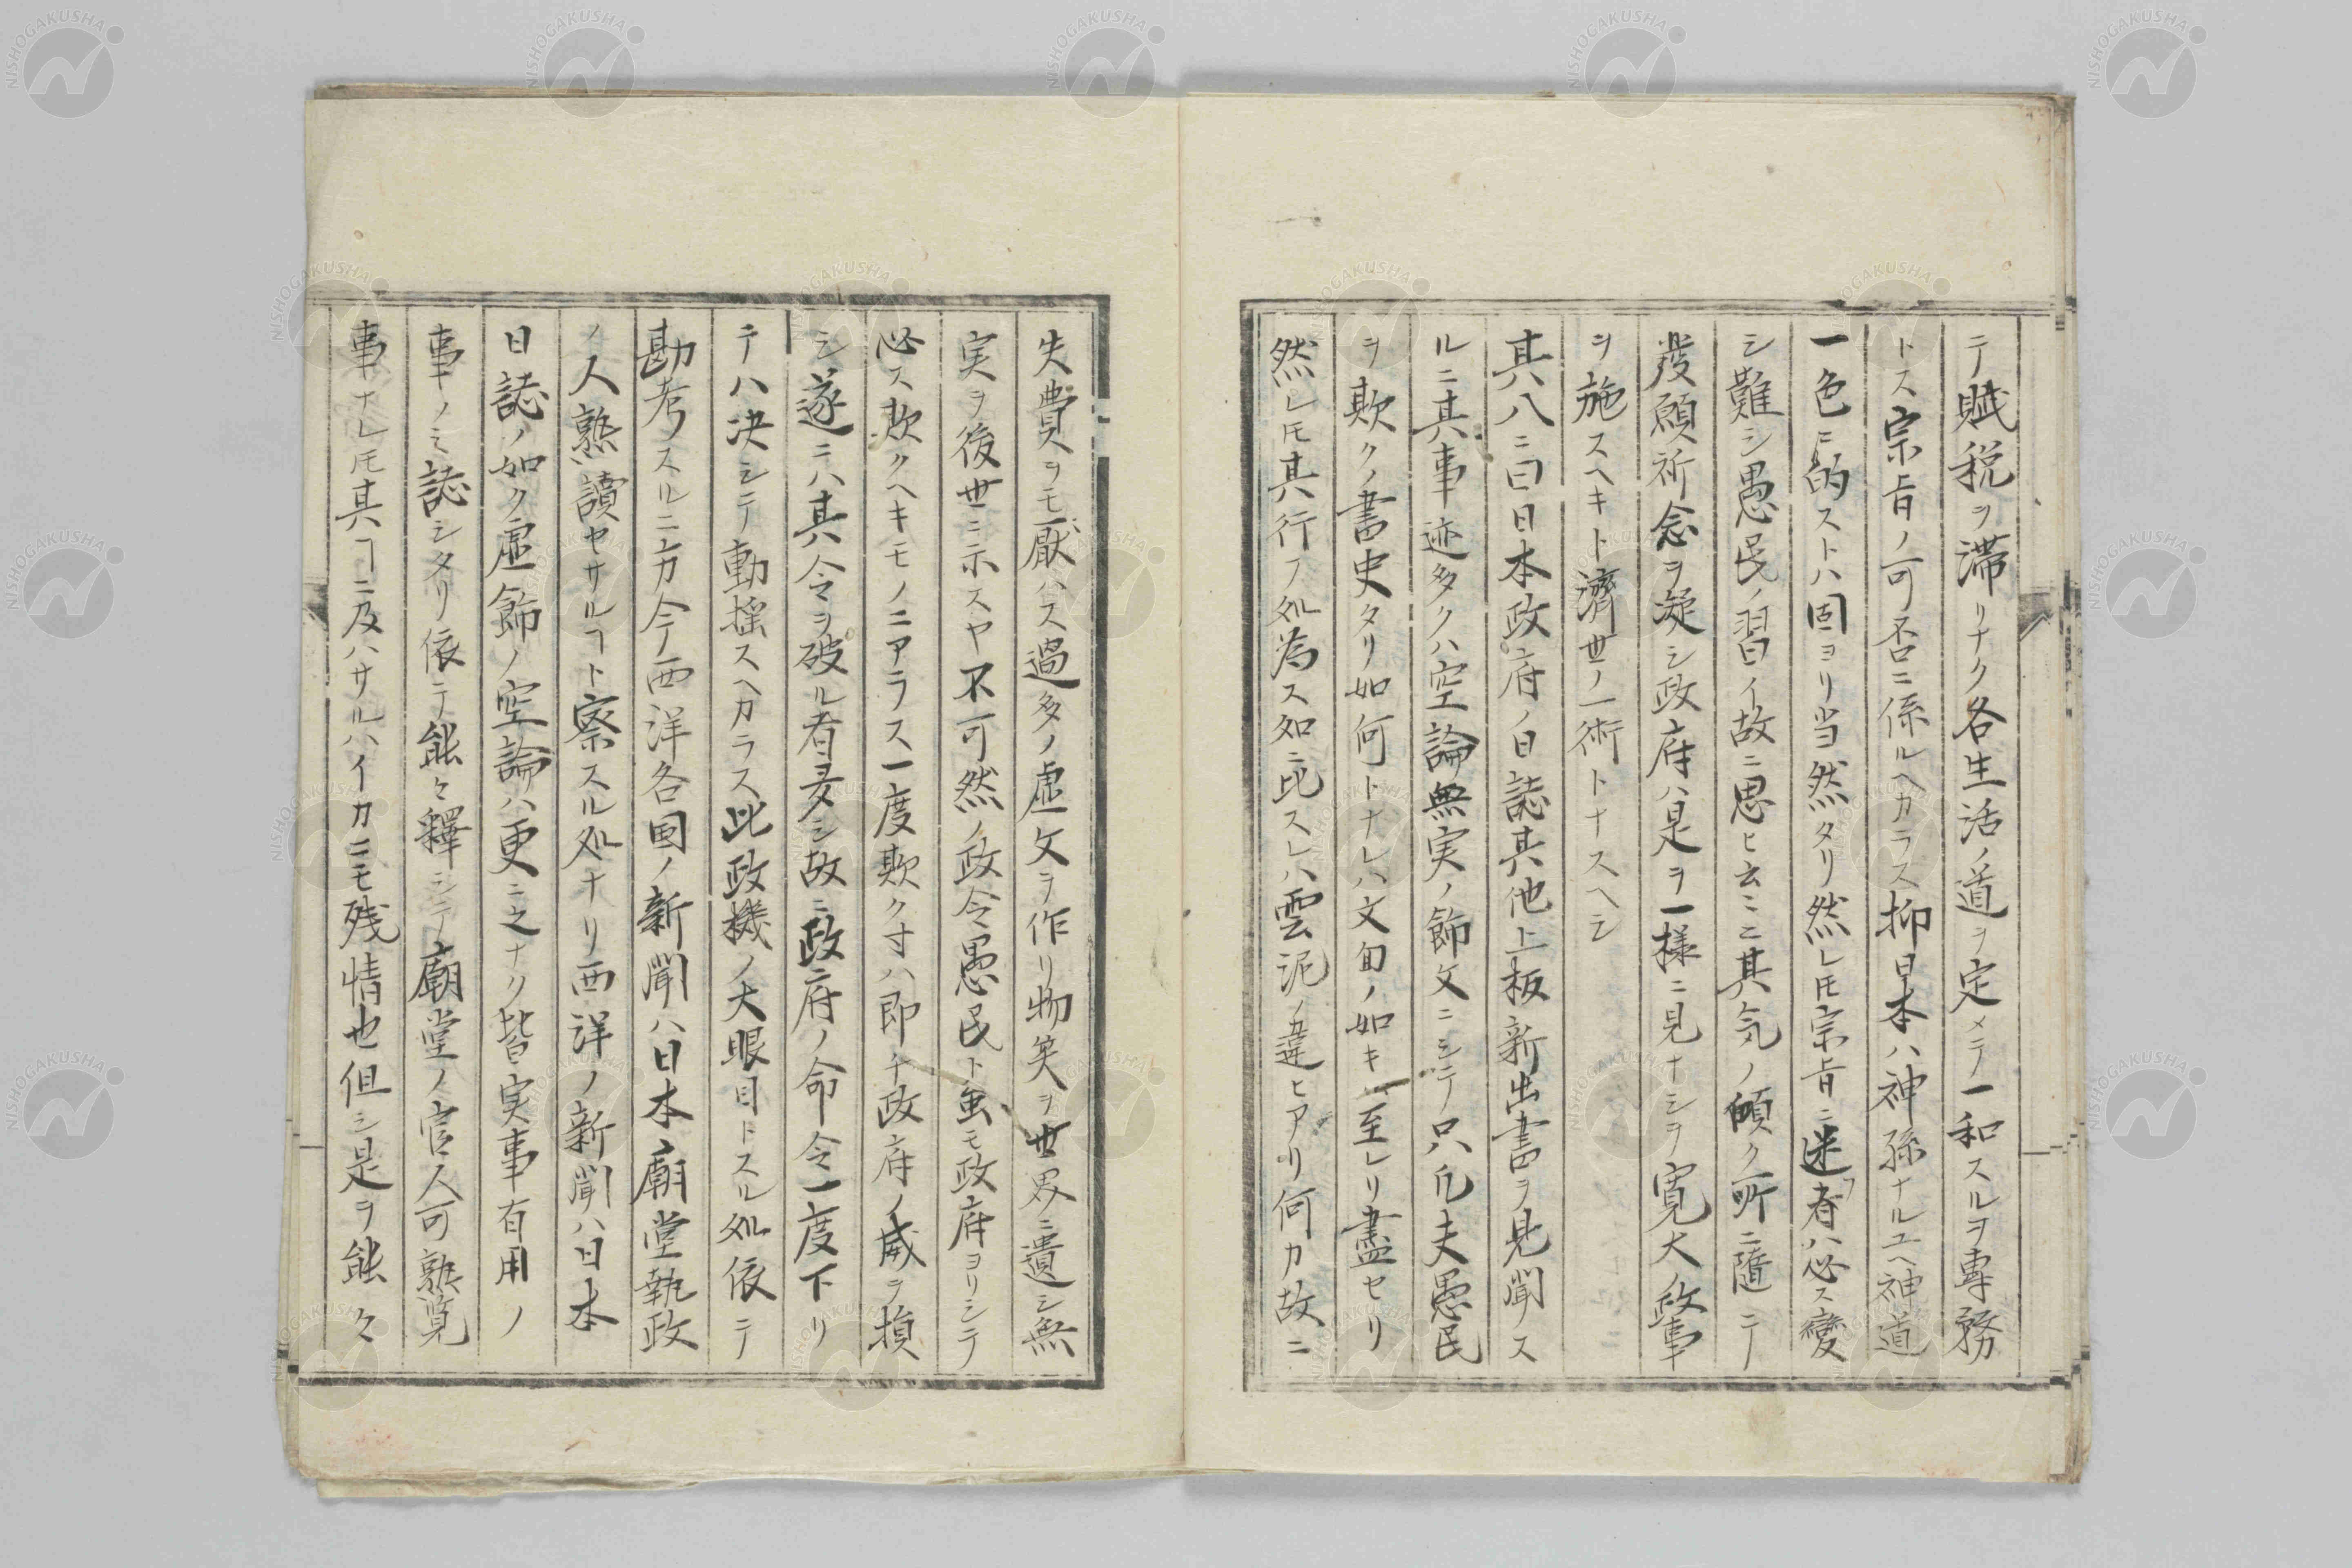 テ賦税ヲ滞リナク各生活ノ道ヲ定メテ一和スルヲ専務
トス宗旨ノ可否ニ係ルヘカラス抑日本ハ神孫ナルユヘ神道
一色ニ的ストハ固ヨリ当然タリ然レ𪜈宗旨ニ迷フ者ハ必ス変
シ難シ愚民ノ習イ故ニ思ヒ〻〻ニ其気ノ傾ク所ニ随ニテ
発願祈念ヲ凝シ政府ハ是ヲ一様ニ見ナシヲ寛大ノ政事
ヲ施スヘキト済世ノ一術トナスヘシ
其八ニ曰日本政府ノ日誌其他上板新出書ヲ見聞ス
ルニ其事迹多クハ空論無実ノ飾文ニシテ只凡夫愚民
ヲ欺クノ書史タリ如何トナレハ文旬ノ如キ至レリ尽セリ
然レ𪜈其行フ処為ス処ニ比スレハ雲泥ノ違ヒアリ何カ故ニ
失費ヲモ厭ハス過多ノ虚文ヲ作リ物笑ヲ世界ニ遺シ無
実ヲ後世ニ示スヤ不可然ノ政令愚民ト虽モ政府ヨリシテ
必ス欺クヘキモノニアラス一度欺ク寸ハ即チ政府ノ威ヲ損
シ遂ニハ其令ヲ破ル者多シ故ニ政府ノ命令一度下リ
テハ决シテ動揺スヘカラス此政機ノ大眼目トスル処依テ
勘考スルニ方今西洋各国ノ新聞ハ日本廟堂執政
ノ人熟讀セサルヿト察スル処ナリ西洋ノ新聞ハ日本
日誌ノ如ク虚飾ノ空論ハ更ニ之ナク皆実事有用ノ
事ノミ誌シタリ依テ能々釋シテ廟堂ノ官人可熟覧
事ナレ𪜈其ヿニ及ハサルハイカニモ残情也但シ是ヲ能々